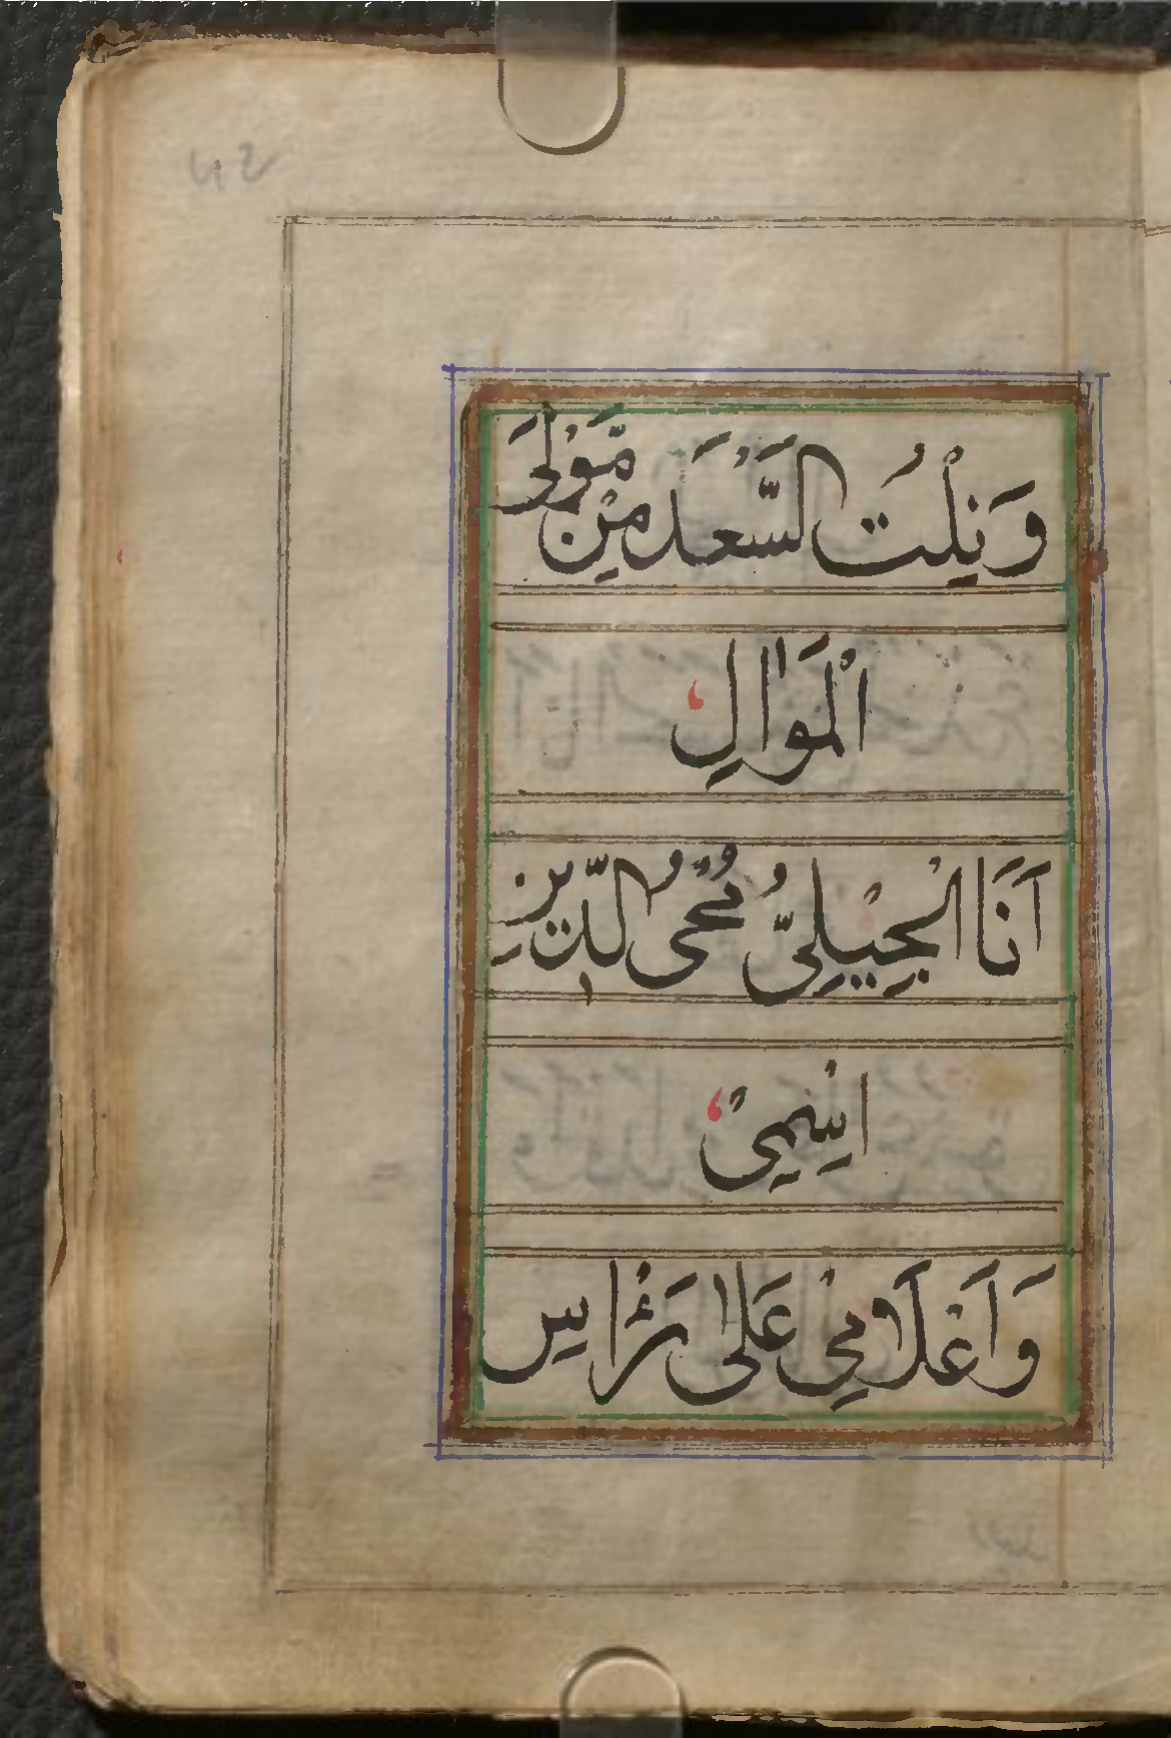 42
وَنِلْتُ السَّعْدَ مِنْ مَّوْلَى
الْمَوَالِ
اَنَا الْجِيْلِىُّ مُحْىُ الدِّيْنِ
اسْمِىْ
وَاَعْلَامِىْ عَلٰى رَأْسِ